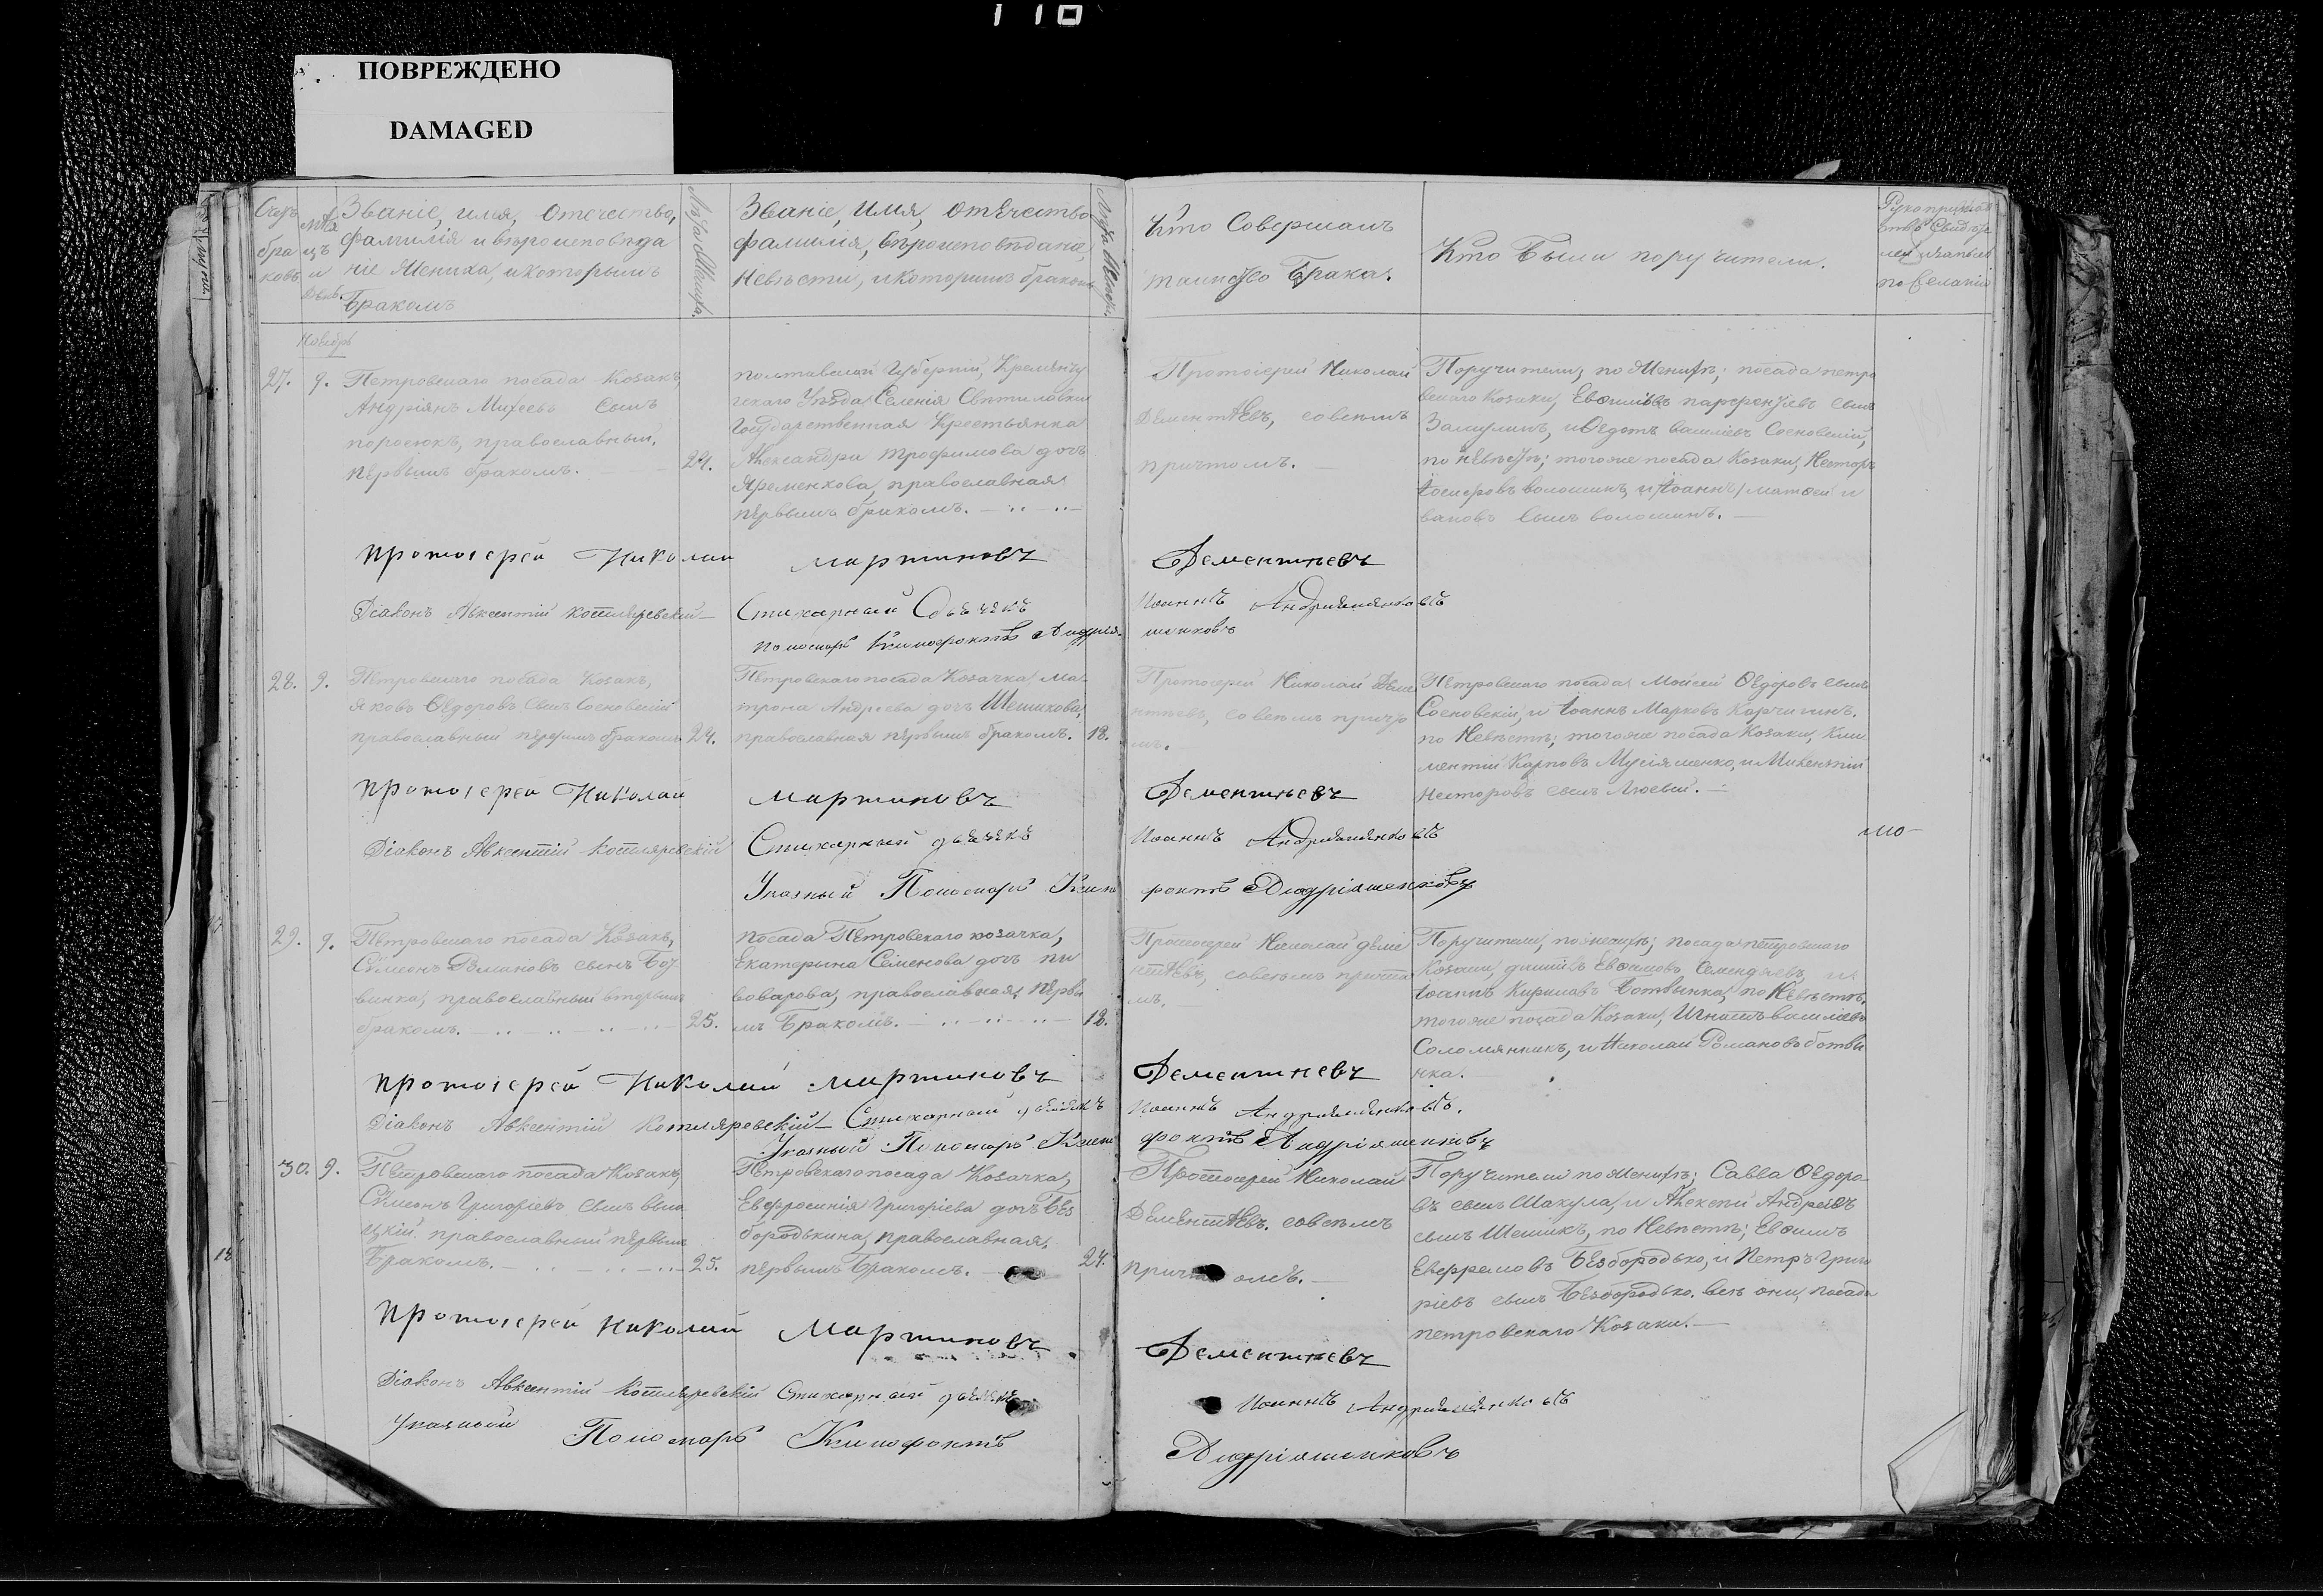 110
ПОВРЕЖДЕНО
DAMAGED
Счетъ браковъ
Мѣсяцъ и день
Званіе, имя, отечество,
фамилія и вѣроисповѣда
ніе Жениха, и которымъ
бракомъ
Лѣта Жениха.
Званіе, имя, отечество
фамилія, вѣроисповѣданіе,
Невѣсти, и которимъ бракомъ
Лѣта Невѣсты.
Кто Совершалъ
таинство Брака.
Кто были поручители.
по желанію
Ноябрь
27. 9.
Петровскаго посада Козакъ,
Андріянъ Михеевъ сынъ
поросюкъ, православный,
первымъ бракомъ. —
24.
полтавской Губерніи, Кременчу
гскаго Уѣзда Селенія Свѣтиловки
Государственная Крестьянка
Александра Трофимова дочь
Яременкова, православная
первымъ бракомъ.
Протоіерей Николай
Дементѣевъ, совсѣмъ
причтомъ. —
Поручители, по Женихѣ; посада петро
вскаго Козаки, сынъ
и Ѳедотъ василіевъ Сосновскій,
по невѣстѣ; тогоже посада Козаки, Несторъ
Іосифовъ волошинъ, и Іоаннъ матвѣй и
вановъ сынъ волошинъ. —
протоіерей Николай мартиновъ Дементѣевъ
Діаконъ Авксентій Котляревскій — Стихарный Дьячекъ Иоаннъ Андріяшенковъ
пономарь Ксенофонтъ Андрія шенковъ
28. 9.
Петровскаго посада Козакъ,
Яковъ Ѳедоровъ сынъ Сосновскій
православный первымъ бракомъ
24.
Петровскаго посада Козачка, Ма
трона Андреева дочь Шешикова,
православная первымъ бракомъ.
18.
Протоіерей Николай Деме
нтѣевъ, совсѣмъ причто
мъ. —
Петровскаго посада Мойсей Ѳедоровъ сынъ
Сосновскій, и Іоаннъ Марковъ Карчигинъ.
по Невѣстѣ; тогоже посада Козаки, Кли
ментій Карповъ и
Несторовъ сынъ Люсый. —
протоіерей Николай мартиновъ Дементѣевъ
Діаконъ Авксентій Котляревскій Стихарный дьячекъ Иоаннъ Андріяшенковъ
Указный Пономарь Ксено фонтъ Андріяшенковъ
29. 9.
Петровскаго посада Козакъ,
Симеонъ Романовъ сынъ Бот
винка, православный вторымъ
бракомъ.
25.
посада Петровскаго козачка,
Екатерына Семенова дочь пи
воварова, православная, первы
мъ бракомъ.
18.
Протоіерей Николай деме
нтѣевъ, совсѣмъ причто
мъ. —
Поручители, по женихѣ; посада петровскаго
Козаки, и
Іоаннъ Кириловъ ботвынка, по Невѣстѣ,
тогоже посада Козаки, Игнатъ василіевъ
Соломянникъ, и Николай Романовъ ботвы
нка.
протоіерей Николай мартиновъ Дементѣевъ
Діаконъ Авксентій Котляревскій — Стихарный дьячекъ Иоаннъ Андріяшенковъ.
Указный Пономарь Ксено фонтъ Андріяшенковъ
30. 9.
Петровскаго посада Козакъ,
Симеонъ Григоріевъ сынъ
православный первымъ
бракомъ.
25.
Петровскаго посада Козачка,
Евфросинія Григоріева дочь Без
бородькина, православная,
первымъ бракомъ.
24.
Протоіерей Николай
Дементѣевъ. совсѣмъ
причтомъ. —
Поручители по Женихѣ; Савва Ѳедоро
въ сынъ Шакула, и Алексѣй Андреевъ
сынъ Шешикъ, по Невѣстѣ; Евѳимъ
Евфремовъ Безбородько, и Петръ Григо
ріевъ сынъ Безбородько. всѣ они, посада
петровскаго Козаки. —
протоіерей Николай Мартиновъ Дементѣевъ
Діаконъ Авксентій Котляревскій Стихарный дьячекъ Иоаннъ Андріяшенковъ
Указный Пономарь Ксенофонтъ Андріяшенковъ